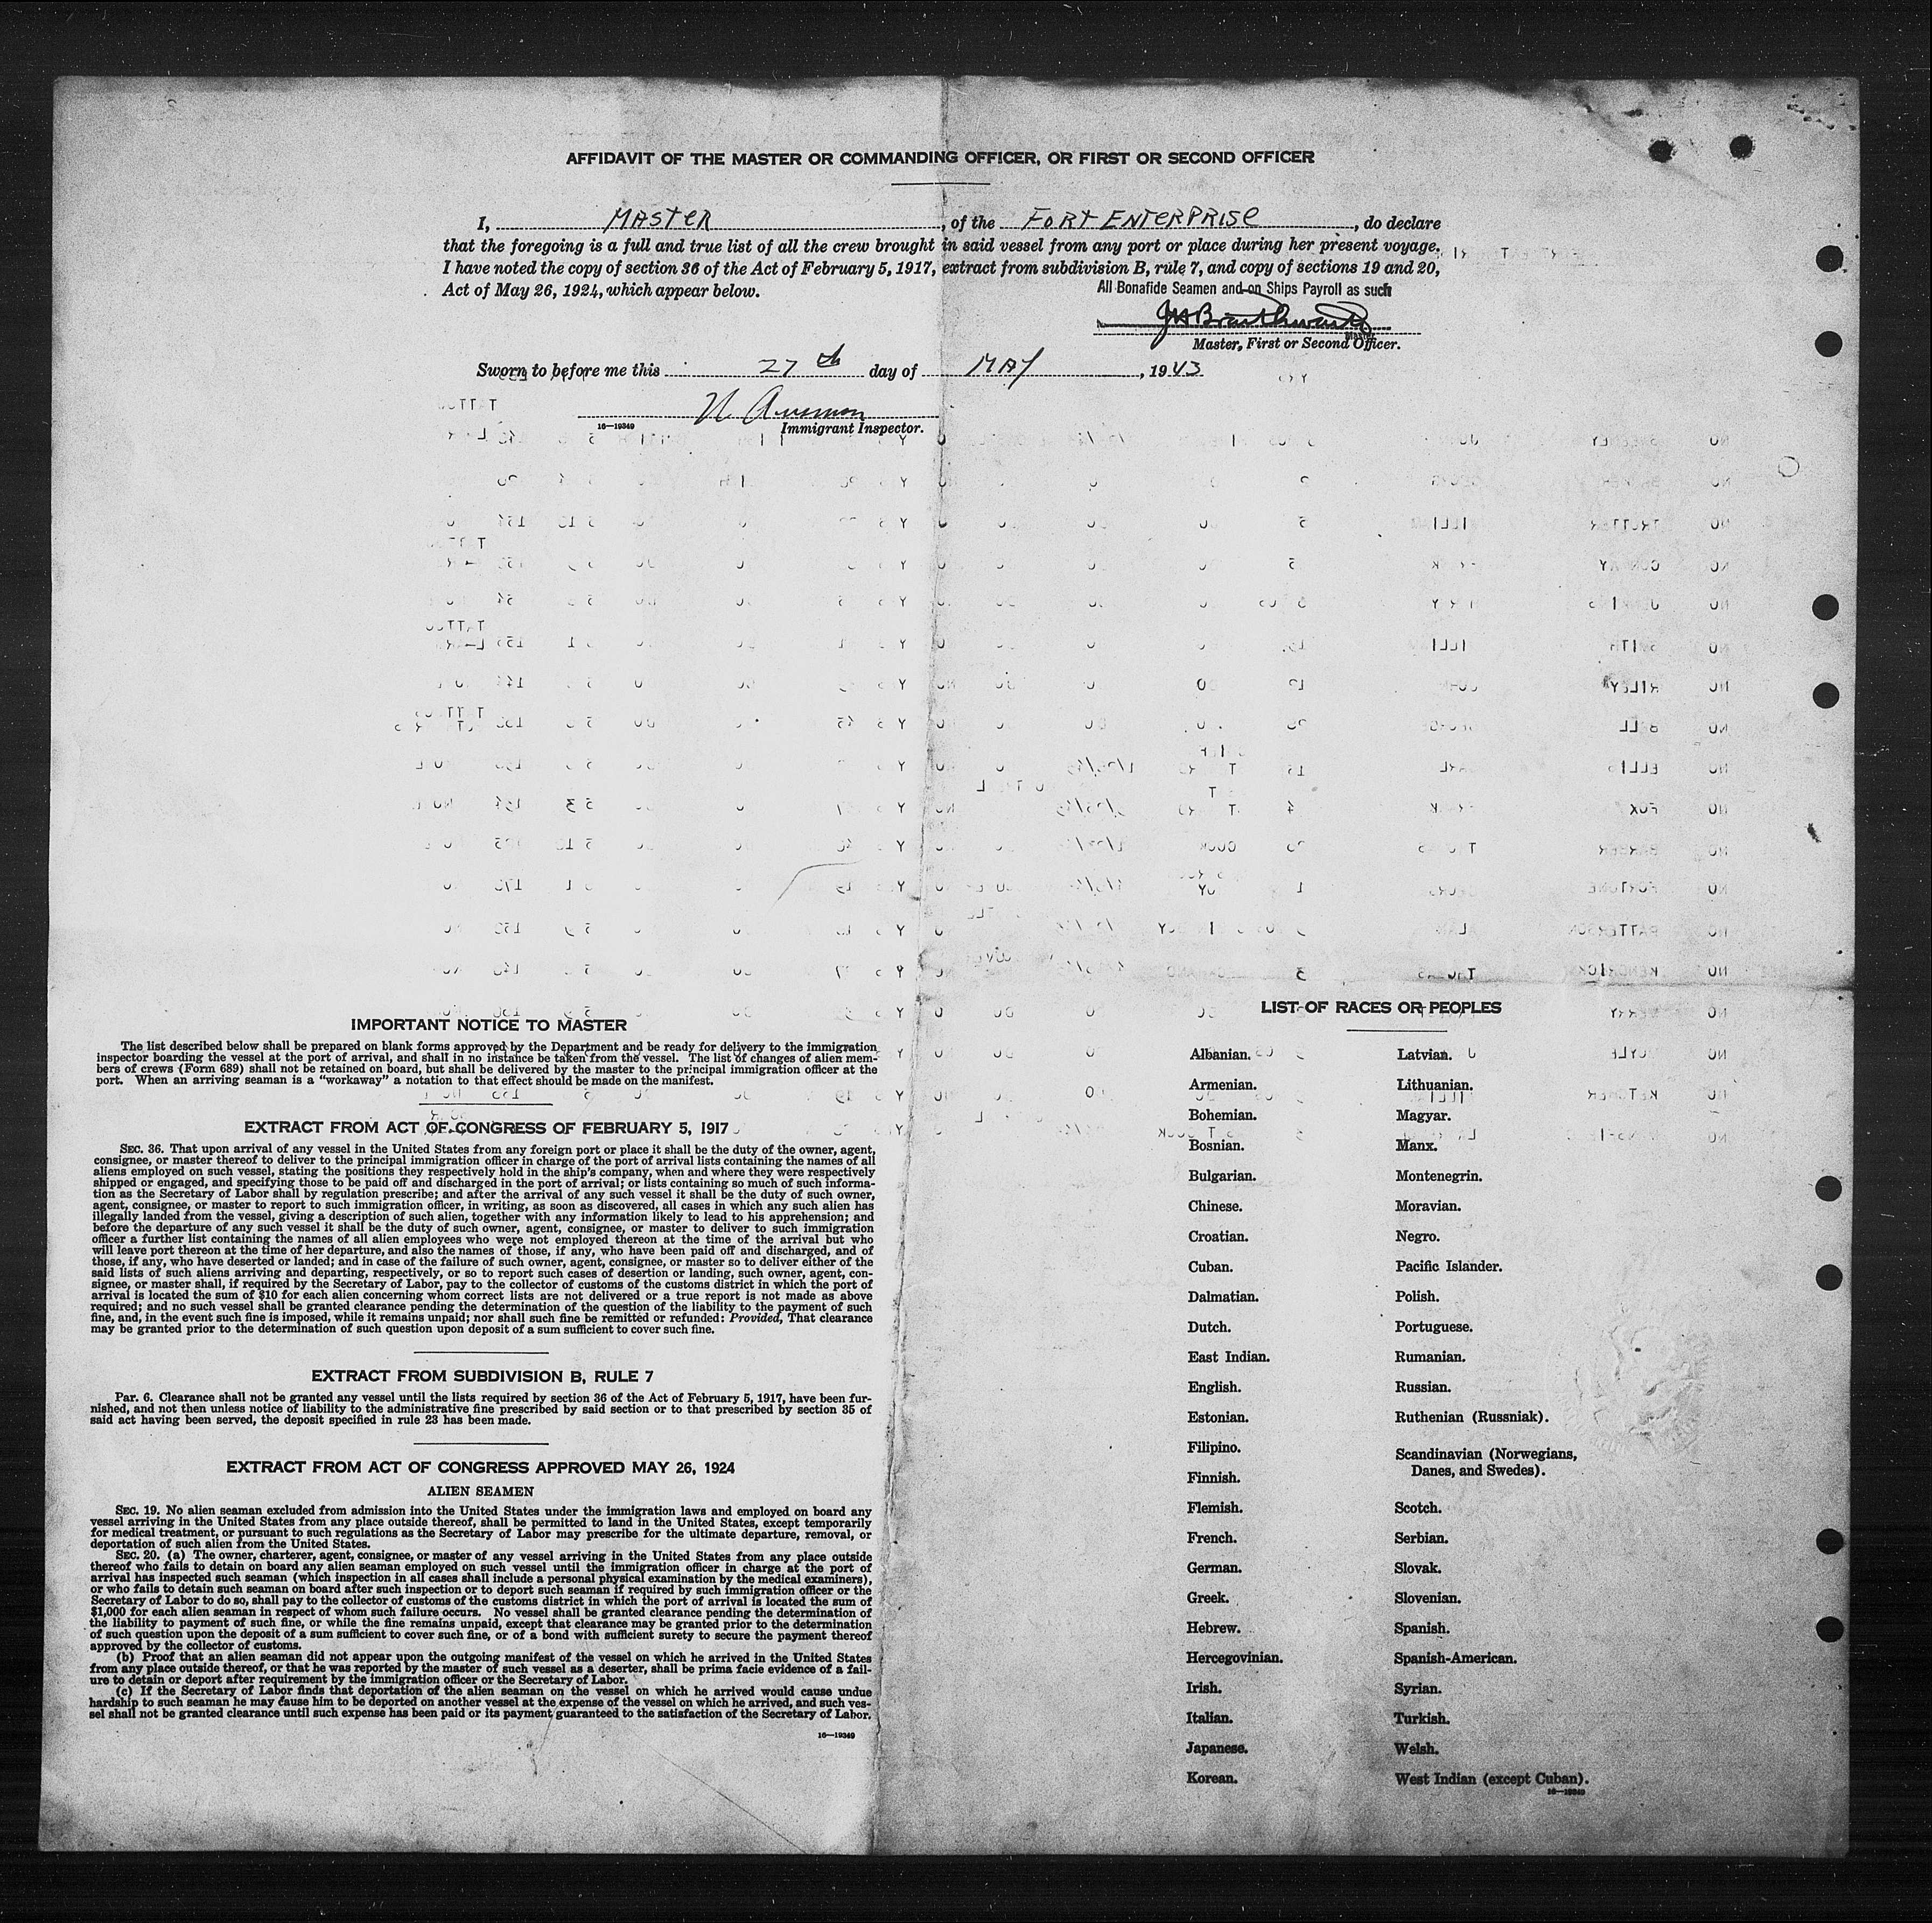 AFFIDAVIT OF THE MASTER OR COMMANDING OFFICER, OR FIRST OR SECOND OFFICER
I, MASTER, of the FORT ENTERPRISE, do declare
that the foregoing is a full and true list of all the crew brought in said vessel from any port or place during her present voyage.
I have noted the copy of section 36 of the Act of February 5, 1917, extract from subdivision B, rule 7, and copy of sections 19 and 20,
Act of May 26, 1924, which appear below.
All Bonafide Seamen and on Ships Payroll as such
Master
Master, First or Second Officer.
Sworn to before me this 27th day of MAY, 1943
16—19349
Immigrant Inspector.
IMPORTANT NOTICE TO MASTER
The list described below shall be prepared on blank forms approved by the Department and be ready for delivery to the immigration
inspector boarding the vessel at the port of arrival, and shall in no instance be taken from the vessel. The list of changes of alien mem-
bers of crews (Form 689) shall not be retained on board, but shall be delivered by the master to the principal immigration officer at the
port. When an arriving seaman is a "workaway" a notation to that effect should be made on the manifest.
EXTRACT FROM ACT OF CONGRESS OF FEBRUARY 5, 1917
SEC. 36. That upon arrival of any vessel in the United States from any foreign port or place it shall be the duty of the owner, agent,
consignee, or master thereof to deliver to the principal immigration officer in charge of the port of arrival lists containing the names of all
aliens employed on such vessel, stating the positions they respectively hold in the ship's company, when and where they were respectively
shipped or engaged, and specifying those to be paid off and discharged in the port of arrival; or lists containing so much of such informa-
tion as the Secretary of Labor shall by regulation prescribe; and after the arrival of any such vessel it shall be the duty of such owner,
agent, consignee, or master to report to such immigration officer, in writing, as soon as discovered, all cases in which any such alien has
illegally landed from the vessel, giving a description of such alien, together with any information likely to lead to his apprehension; and
before the departure of any such vessel it shall be the duty of such owner, agent, consignee, or master to deliver to such immigration
officer a further list containing the names of all alien employees who were not employed thereon at the time of the arrival but who
will leave port thereon at the time of her departure, and also the names of those, if any, who have been paid off and discharged, and of
those, if any, who have deserted or landed; and in case of the failure of such owner, agent, consignee, or master so to deliver either of the
said lists of such aliens arriving and departing, respectively, or so to report such cases of desertion or landing, such owner, agent, con-
signee, or master shall, if required by the Secretary of Labor, pay to the collector of customs of the customs district in which the port of
arrival is located the sum of $10 for each alien concerning whom correct lists are not delivered or a true report is not made as above
required; and no such vessel shall be granted clearance pending the determination of the question of the liability to the payment of such
fine, and, in the event such fine is imposed, while it remains unpaid; nor shall such fine be remitted or refunded: Provided, That clearance
may be granted prior to the determination of such question upon deposit of a sum sufficient to cover such fine.
EXTRACT FROM SUBDIVISION B, RULE 7
Par. 6. Clearance shall not be granted any vessel until the lists required by section 36 of the Act of February 5, 1917, have been fur-
nished, and not then unless notice of liability to the administrative fine prescribed by said section or to that prescribed by section 35 of
said act having been served, the deposit specified in rule 23 has been made.
EXTRACT FROM ACT OF CONGRESS APPROVED MAY 26, 1924
ALIEN SEAMEN
SEC. 19. No alien seaman excluded from admission into the United States under the immigration laws and employed on board any
vessel arriving in the United States from any place outside thereof, shall be permitted to land in the United States, except temporarily
for medical treatment, or pursuant to such regulations as the Secretary of Labor may prescribe for the ultimate departure, removal, or
deportation of such alien from the United States.
SEC. 20. (a) The owner, charterer, agent, consignee, or master of any vessel arriving in the United States from any place outside
thereof who fails to detain on board any alien seaman employed on such vessel until the immigration officer in charge at the port of
arrival has inspected such seaman (which inspection in all cases shall include a personal physical examination by the medical examiners),
or who fails to detain such seaman on board after such inspection or to deport such seaman if required by such immigration officer or the
Secretary of Labor to do so, shall pay to the collector of customs of the customs district in which the port of arrival is located the sum of
$1,000 for each alien seaman in respect of whom such failure occurs. No vessel shall be granted clearance pending the determination of
the liability to payment of such fine, or while the fine remains unpaid, except that clearance may be granted prior to the determination
of such question upon the deposit of a sum sufficient to cover such fine, or of a bond with sufficient surety to secure the payment thereof
approved by the collector of customs.
(b) Proof that an alien seaman did not appear upon the outgoing manifest of the vessel on which he arrived in the United States
from any place outside thereof, or that he was reported by the master of such vessel as a deserter, shall be prima facie evidence of a fail-
ure to detain or deport after requirement by the immigration officer or the Secretary of Labor.
(c) If the Secretary of Labor finds that deportation of the alien seaman on the vessel on which he arrived would cause undue
hardship to such seaman he may cause him to be deported on another vessel at the expense of the vessel on which he arrived, and such ves-
sel shall not be granted clearance until such expense has been paid or its payment guaranteed to the satisfaction of the Secretary of Labor.
16—19349
LIST OF RACES OR PEOPLES
Albanian.
Armenian.
Bohemian.
Bosnian.
Bulgarian.
Chinese.
Croatian.
Cuban.
Dalmatian.
Dutch.
East Indian.
English.
Estonian.
Filipino.
Finnish.
Flemish.
French.
German.
Greek.
Hebrew.
Hercegovinian.
Irish.
Italian.
Japanese.
Korean.
Latvian.
Lithuanian.
Magyar.
Manx.
Montenegrin.
Moravian.
Negro.
Pacific Islander.
Polish.
Portuguese.
Rumanian.
Russian.
Ruthenian (Russniak).
Scandinavian (Norwegians,
Danes, and Swedes).
Scotch.
Serbian.
Slovak.
Slovenian.
Spanish.
Spanish-American.
Syrian.
Turkish.
Welsh.
West Indian (except Cuban).
16—19349